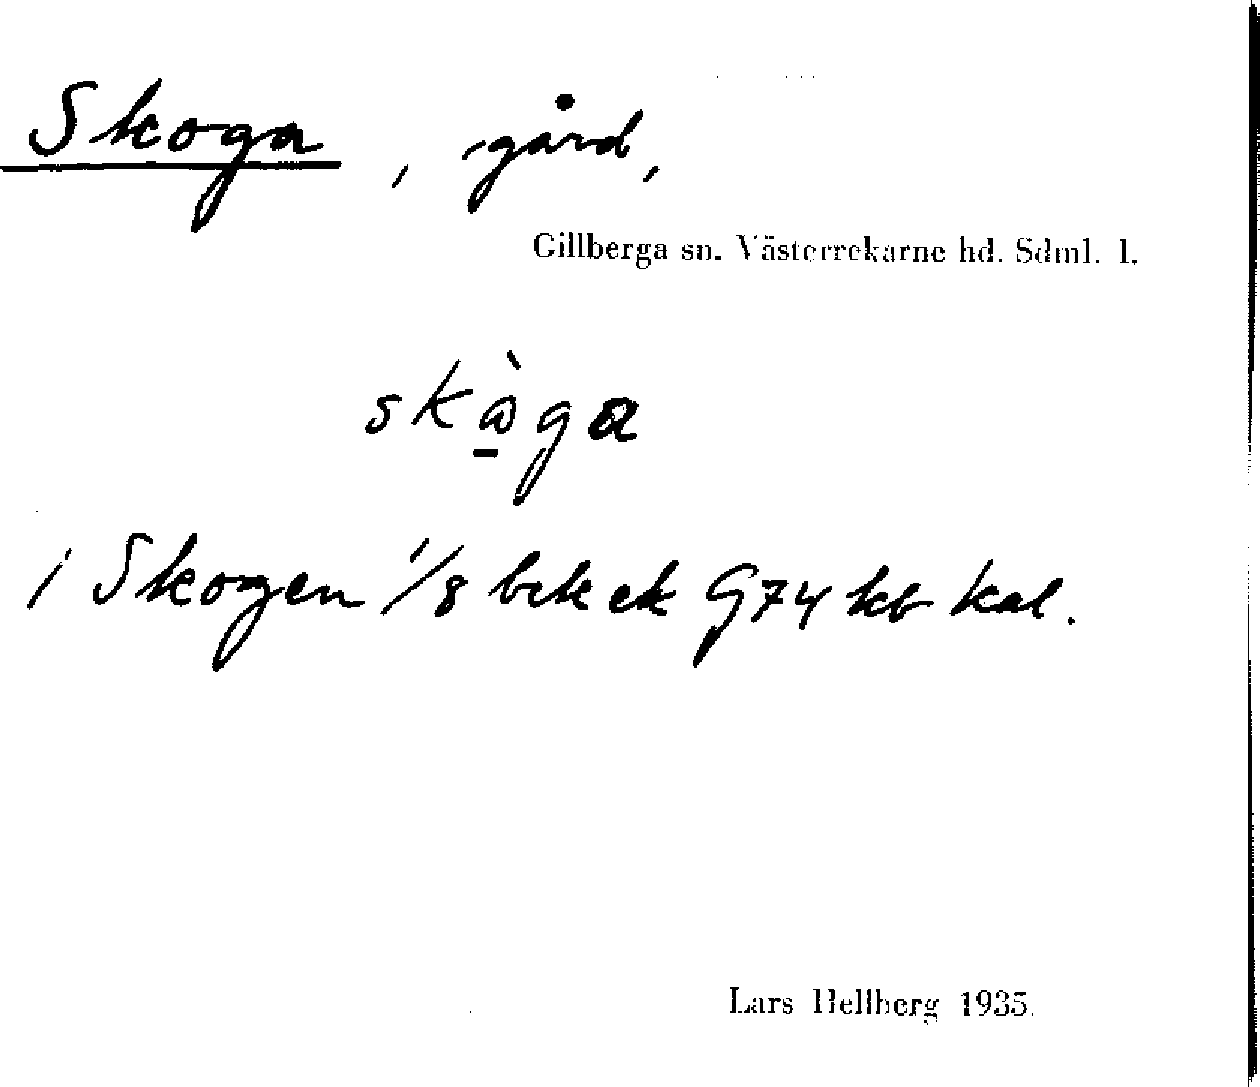 Skoga, gård,
Gillberga sn. Västerrekarne hd. Sdml. l.
skὼ̱ga
/ Skogen 1/8 bek ek G74 kb kal.
Lars Hellberg 1935.